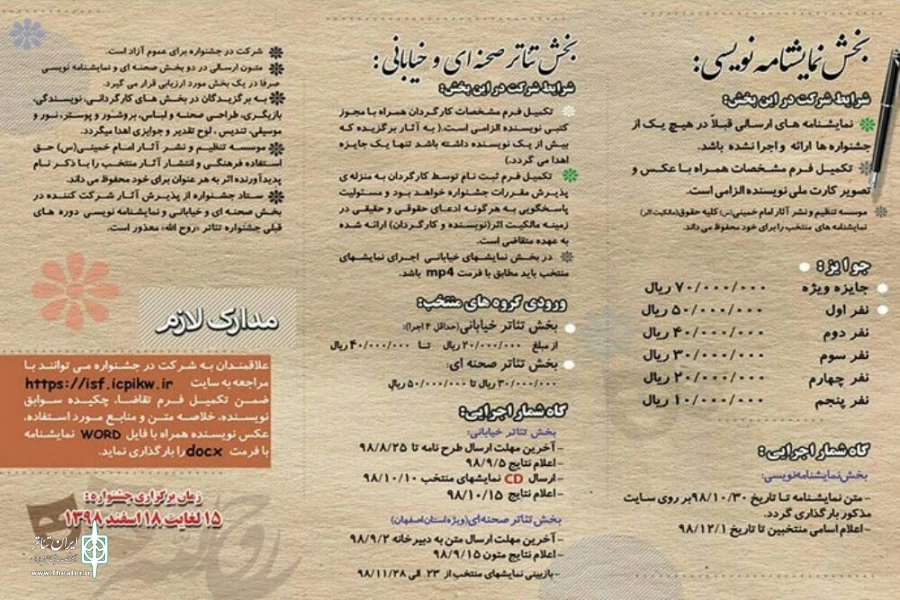 بخش نمایشنامه نویسی:
شرایط شرکت در این بخش:
نمایشنامه های ارسالی قبلاً در هیچ یک از
جشنواره ها ارائه و اجرا نشده باشد.
تکمیل فرم مشخصات همراه با عکس و
تصویر کارت ملی نویسنده الزامی است.
موسسه تنظیم و نشر آثار امام خمینی(س) کلیه حقوق(مالکیت اثر)
نمایشنامه های منتخب را برای خود محفوظ می داند.
جوایز:
جایزه ویژه ۷۰/۰۰۰/۰۰۰ ریال
نفر اول ۵۰/۰۰۰/۰۰۰ ریال
نفر دوم ۴۰/۰۰۰/۰۰۰ ریال
نفر سوم ۳۰/۰۰۰/۰۰۰ ریال
نفر چهارم ۲۰/۰۰۰/۰۰۰ ریال
نفر پنجم ۱۰/۰۰۰/۰۰۰ ریال
گاه شمار اجرایی:
بخش نمایشنامه نویسی:
-متن نمایشنامه تا تاریخ ۹۸/۱۰/۳۰ بر روی سایت
مذکور بارگذاری گردد.
-اعلام اسامی منتخبین تا تاریخ ۹۸/۱۲/۱
بخش تئاتر صحنه ای و خیابانی:
شرایط شرکت در این بخش:
تکمیل فرم مشخصات کارگردان همراه با مجوز
کتبی نویسنده الزامی است.( به آثار برگزیده که
بیش از یک نویسنده داشته باشد تنها یک جایزه
اهدا می گردد.)
تکمیل فرم ثبت نام توسط کارگردان به منزله ی
پذیرش مقررات جشنواره خواهد بود و مسئولیت
پاسخگویی به هرگونه ادعای حقوقی و حقیقی در
زمینه مالکیت اثر(نویسنده و کارگردان) ارائه شده
به عهده متقاضی است.
در بخش نمایشهای خیابانی اجرای نمایشهای
منتخب باید مطابق با فرمت mp4 باشد.
ورودی گروه های منتخب:
بخش تئاتر خیابانی(حداقل ۴ اجرا):
از مبلغ ۲۰/۰۰۰/۰۰۰ تا ۴۰/۰۰۰/۰۰۰ ریال
بخش تئاتر صحنه ای:
۳۰/۰۰۰/۰۰۰ ریال تا ۵۰/۰۰۰/۰۰۰ ریال
گاه شمار اجرایی:
بخش تئاتر خیابانی:
-آخرین مهلت ارسال طرح نامه تا ۹۸/۸/۲۵
-اعلام نتایج ۹۸/۹/۵
-ارسال CD نمایشهای منتخب ۹۸/۱۰/۱۰
-اعلام نتایج ۹۸/۱۰/۱۵
بخش تئاتر صحنه ای(ویژه استان اصفهان)
-آخرین مهلت ارسال متن به دبیرخانه ۹۸/۹/۲
-اعلام نتایج متون ۹۸/۹/۱۵
-بازبینی نمایشهای منتخب از ۲۳ الی ۹۸/۱۱/۲۸
شرکت در جشنواره برای عموم آزاد است.
متون ارسالی در دو بخش صحنه ای و نمایشنامه نویسی
صرفا در یک بخش مورد ارزیابی قرار می گیرد.
به برگزیدگان در بخش های کارگردانی، نویسندگی،
بازیگری، طراحی صحنه و لباس، بروشور و پوستر، نور و
موسیقی، تندیس ، لوح تقدیر و جوایزی اهدا میگردد.
موسسه تنظیم و نشر آثار امام خمینی(س) حق
استفاده فرهنگی و انتشار آثار منتخب را با ذکر نام
پدیدآورنده اثر به هر عنوان برای خود محفوظ می داند.
ستاد جشنواره از پذیرش آثار شرکت کننده در
بخش صحنه ای و خیابانی و نمایشنامه نویسی دوره های
قبلی جشنواره تئاتر «روح الله» معذور است.
مدارک لازم
علاقمندان به شرکت در جشنواره می توانند با
مراجعه به سایت https://isf.icpikw.ir
ضمن تکمیل فرم تقاضا، چکیده سوابق
نویسنده، خلاصه متن و منابع مورد استفاده،
عکس نویسنده همراه با فایل WORD نمایشنامه
با فرمت docx را بارگذاری نماید.
زمان برگزاری جشنواره:
۱۵ لغایت ۱۸ اسفند ۱۳۹۸
ایران تئاتر
www.theater.ir